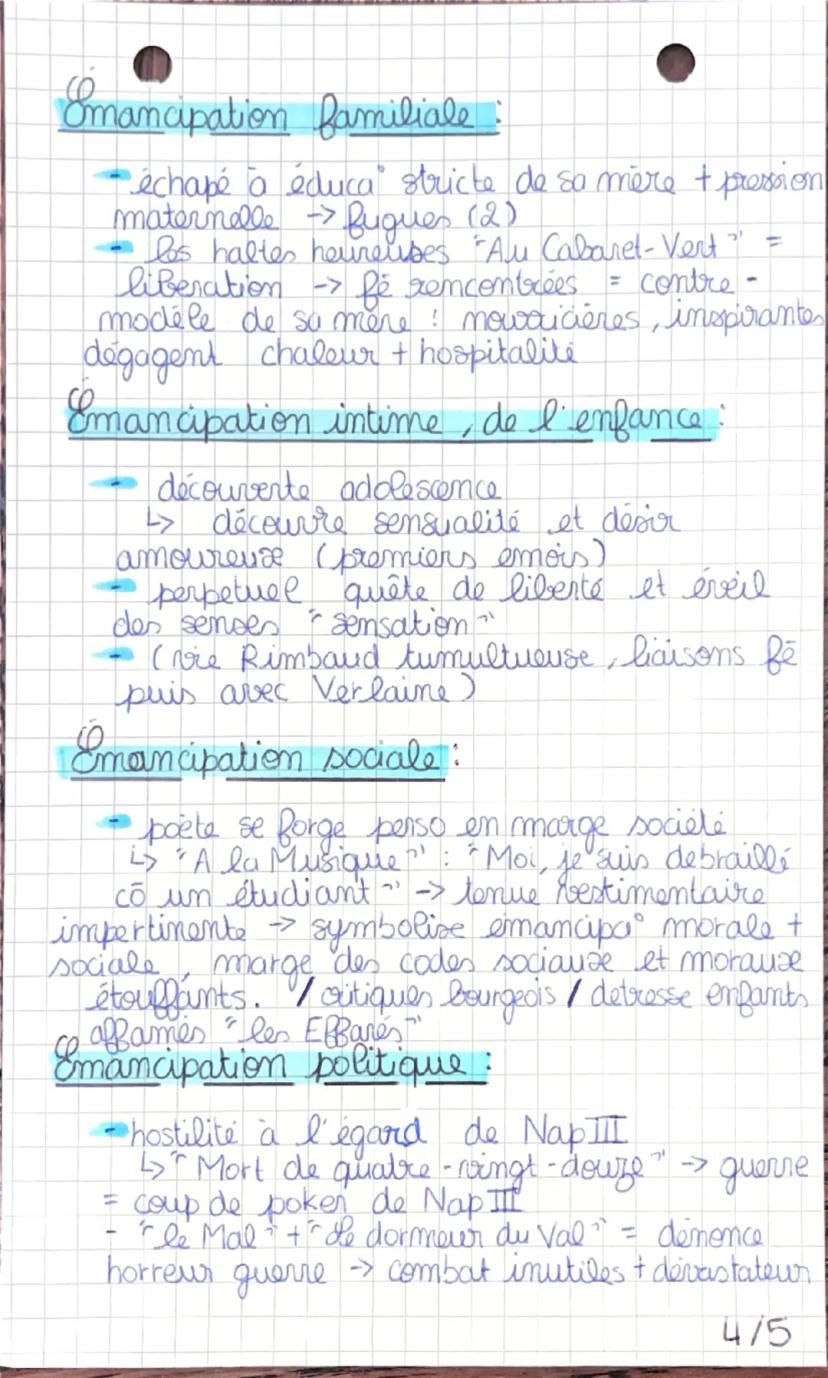 Émancipation familiale :
- échapé à éduca° stricte de sa mère + pression
maternelle -> fugues (2)
- les haltes heureuses "Au Cabaret-Vert" =
libération -> fê remcontrées = contre -
modèle de sa mère : nourricières, inspirantes
dégagent chaleur + hospitalité
Émancipation intime, de l'enfance :
- découverte adolescence
↳ découvre sensualité et désir
amoureux (premiers émois)
- perpetuel quête de liberté et éveil
des senses "sensation"
- (vie Rimbaud tumultueuse, liaisons fê
puis avec Verlaine)
Émancipation sociale :
- poète se forge perso en marge société
↳ "A la Musique" : "Moi, je suis debraillé
cō un étudiant" -> tenue vestimentaire
impertinente -> symbolise émancipa° morale +
sociale, marge des codes sociaux et moraux
étouffants. / critiques bourgeois / detresse enfants
affamés "les Effarés"
Émancipation politique :
- hostilité à l'égard de Nap III
↳ "Mort de quatre-vingt-douze" -> guerre
= coup de poker de Nap III
- "le Mal" + "le dormeur du Val" = dénonce
horreur guerre -> combat inutiles + dévastateur
4/5